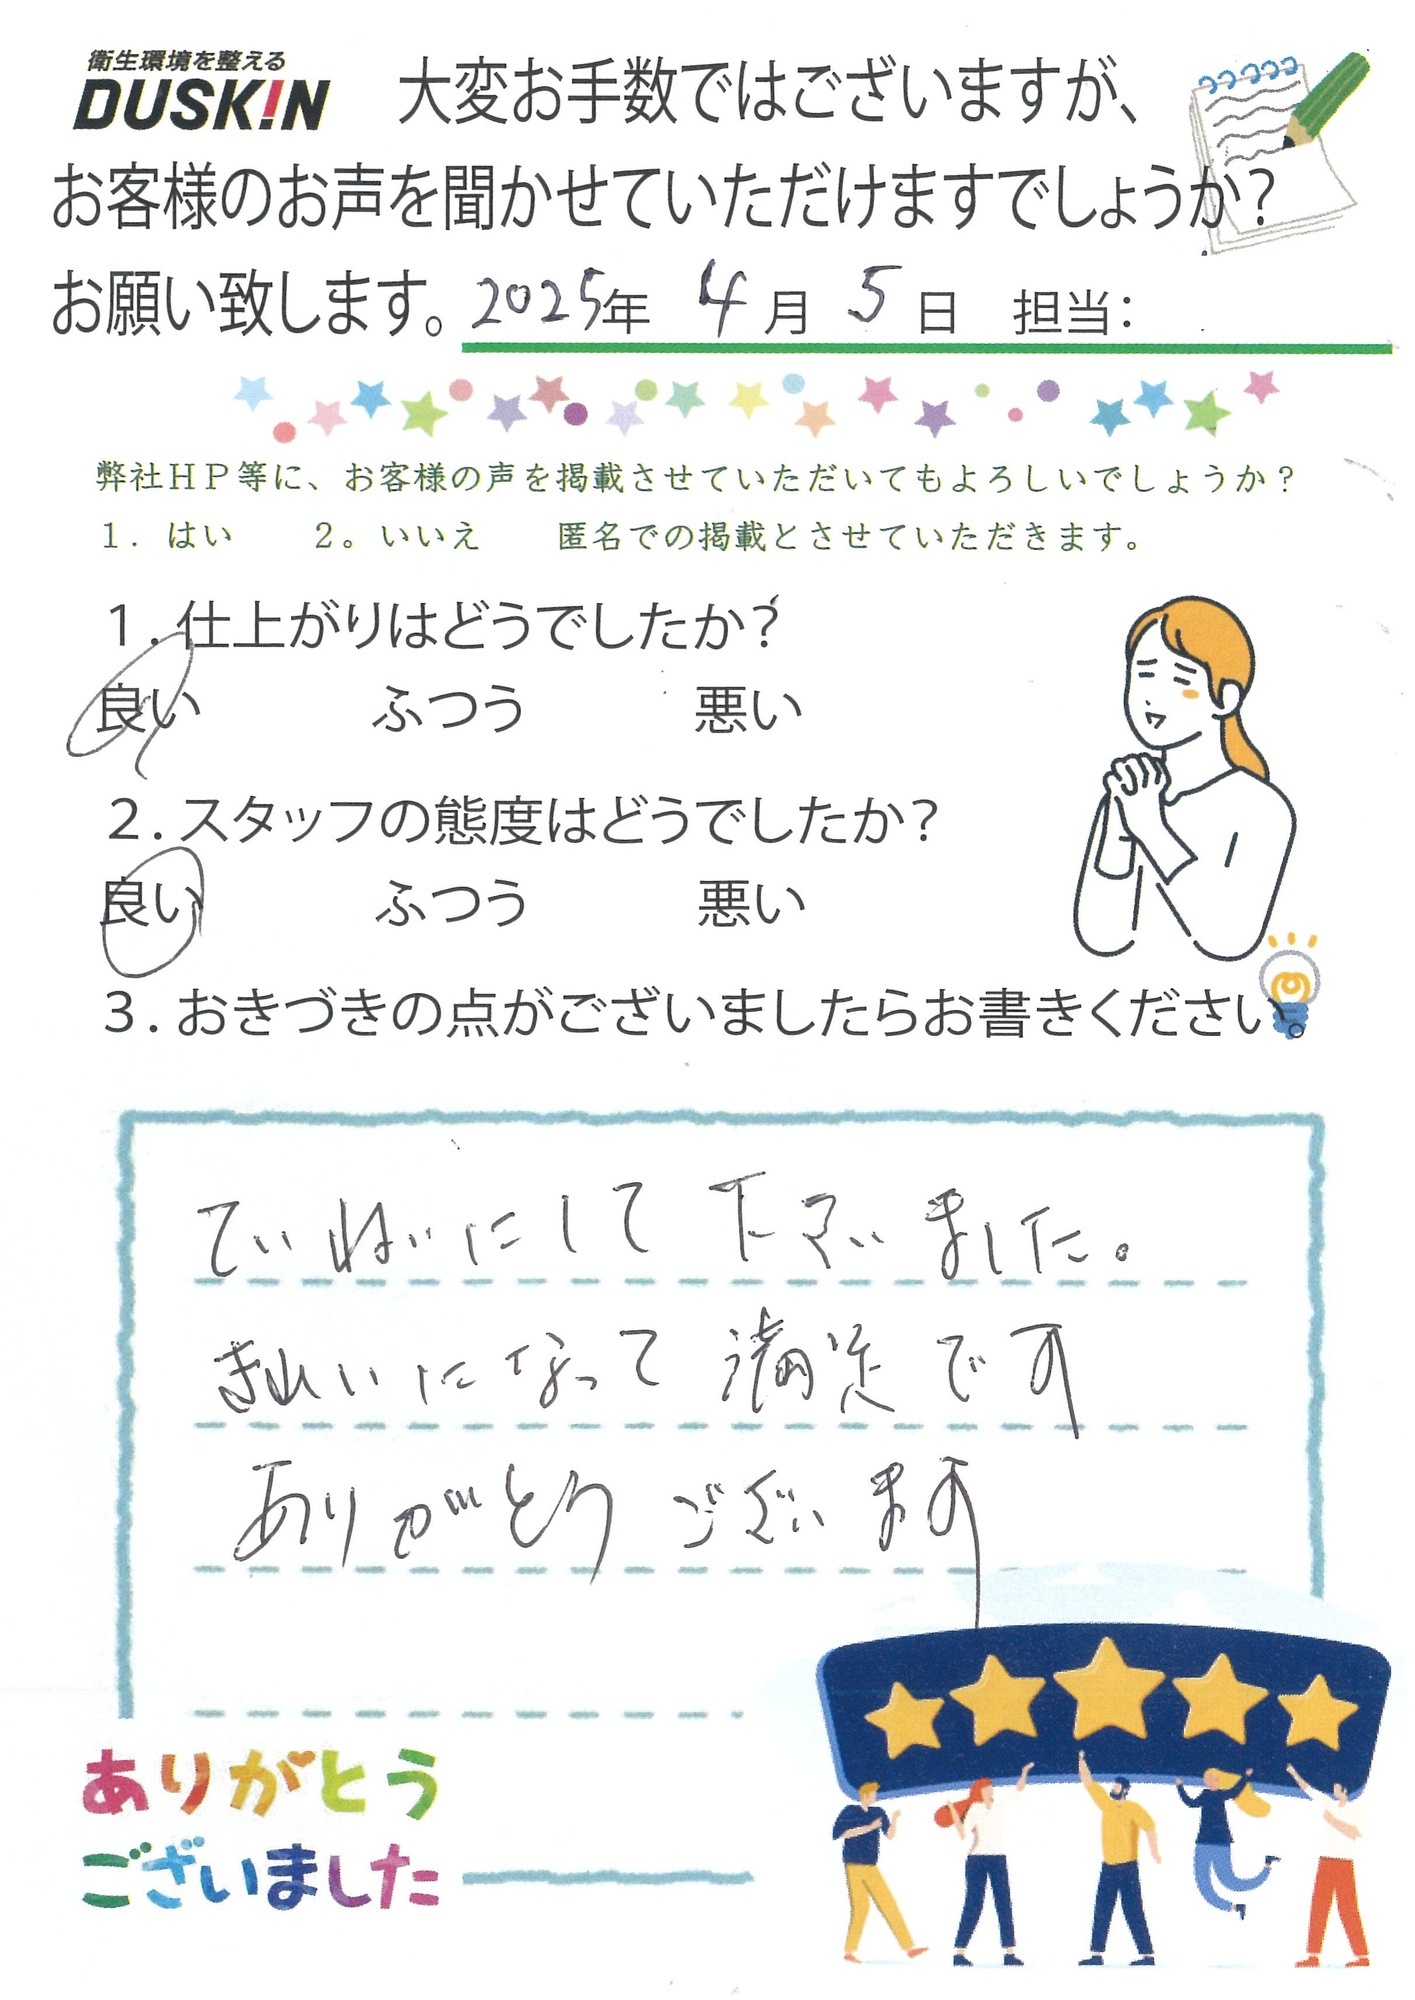 衛生環境を整える
DUSKIN
大変お手数ではございますが、
お客様のお声を聞かせていただけますでしょうか?
お願い致します。2025年 4月 5日 担当:
弊社HP等に、お客様の声を掲載させていただいてもよろしいでしょうか?
1. はい 2。いいえ 匿名での掲載とさせていただきます。
1.仕上がりはどうでしたか?
良い ふつう 悪い
2.スタッフの態度はどうでしたか?
良い ふつう 悪い
3.おきづきの点がございましたらお書きください。
ていねいにして下さいました。
きれいになって満足です
ありがとうございます
ありがとう
ございました